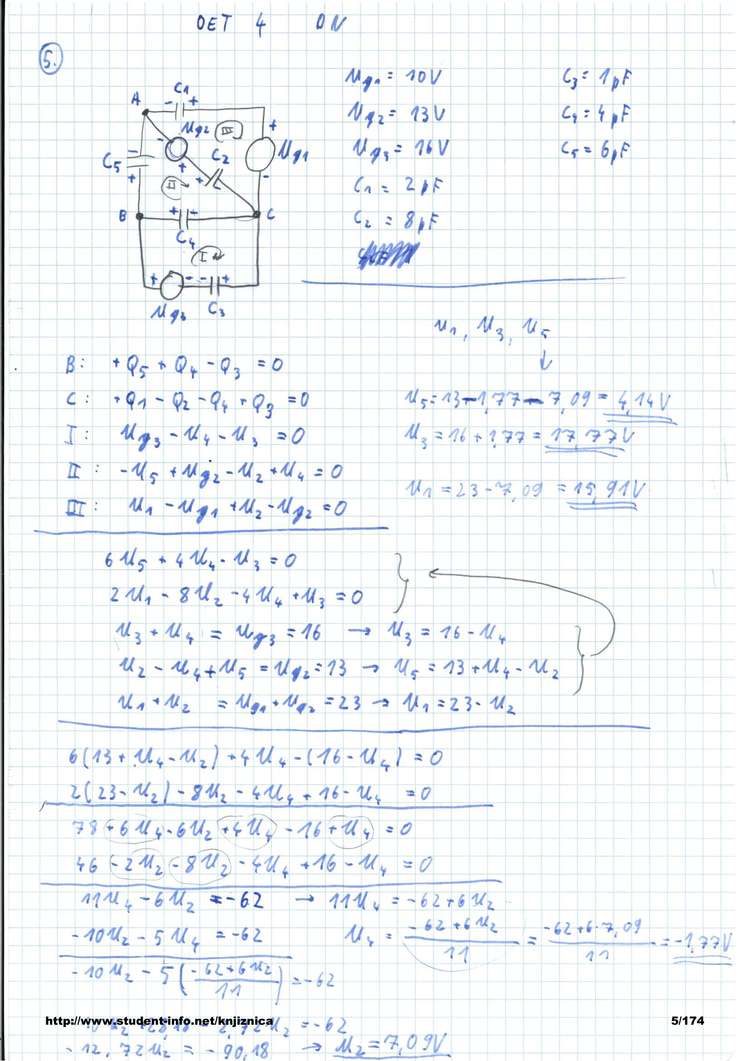 OET 4 DN
5.
Ug1 = 10V
C3 = 1pF
Ug2 = 13V
C4 = 4pF
Ug3 = 16V
C5 = 6pF
C1 = 2pF
C2 = 8pF
A
- C1 +
Ug2
III
+
-
C2
Ug1
C5
-
+
+
+
-
II
B
+ -
C
C4
I
+ - - +
Ug3
C3
U1, U3, U5
↓
B: +Q5 + Q4 - Q3 = 0
C: +Q1 - Q2 - Q4 + Q3 = 0
I: Ug3 - U4 - U3 = 0
II: -U5 + Ug2 - U2 + U4 = 0
III: U1 - Ug1 + U2 - Ug2 = 0
U5 = 13 - 1,77 - 7,09 = 4,14V
U3 = 16 + 1,77 = 17,77V
U1 = 23 - 7,09 = 15,91V
6U5 + 4U4 - U3 = 0
2U1 - 8U2 - 4U4 + U3 = 0
U3 + U4 = Ug3 = 16 → U3 = 16 - U4
U2 - U4 + U5 = Ug2 = 13 → U5 = 13 + U4 - U2
U1 + U2 = Ug1 + Ug2 = 23 → U1 = 23 - U2
6(13 + U4 - U2) + 4U4 - (16 - U4) = 0
2(23 - U2) - 8U2 - 4U4 + 16 - U4 = 0
78 + 6U4 - 6U2 + 4U4 - 16 + U4 = 0
46 - 2U2 - 8U2 - 4U4 + 16 - U4 = 0
11U4 - 6U2 = -62 → 11U4 = -62 + 6U2
-10U2 - 5U4 = -62
U4 = (-62 + 6U2)/11 = (-62 + 6·7,09)/11 = -1,77V
-10U2 - 5((-62 + 6U2)/11) = -62
http://www.student-info.net/knjiznica
5/174
2,72U2 = -62
-12,72U2 = -90,18 → U2 = 7,09V